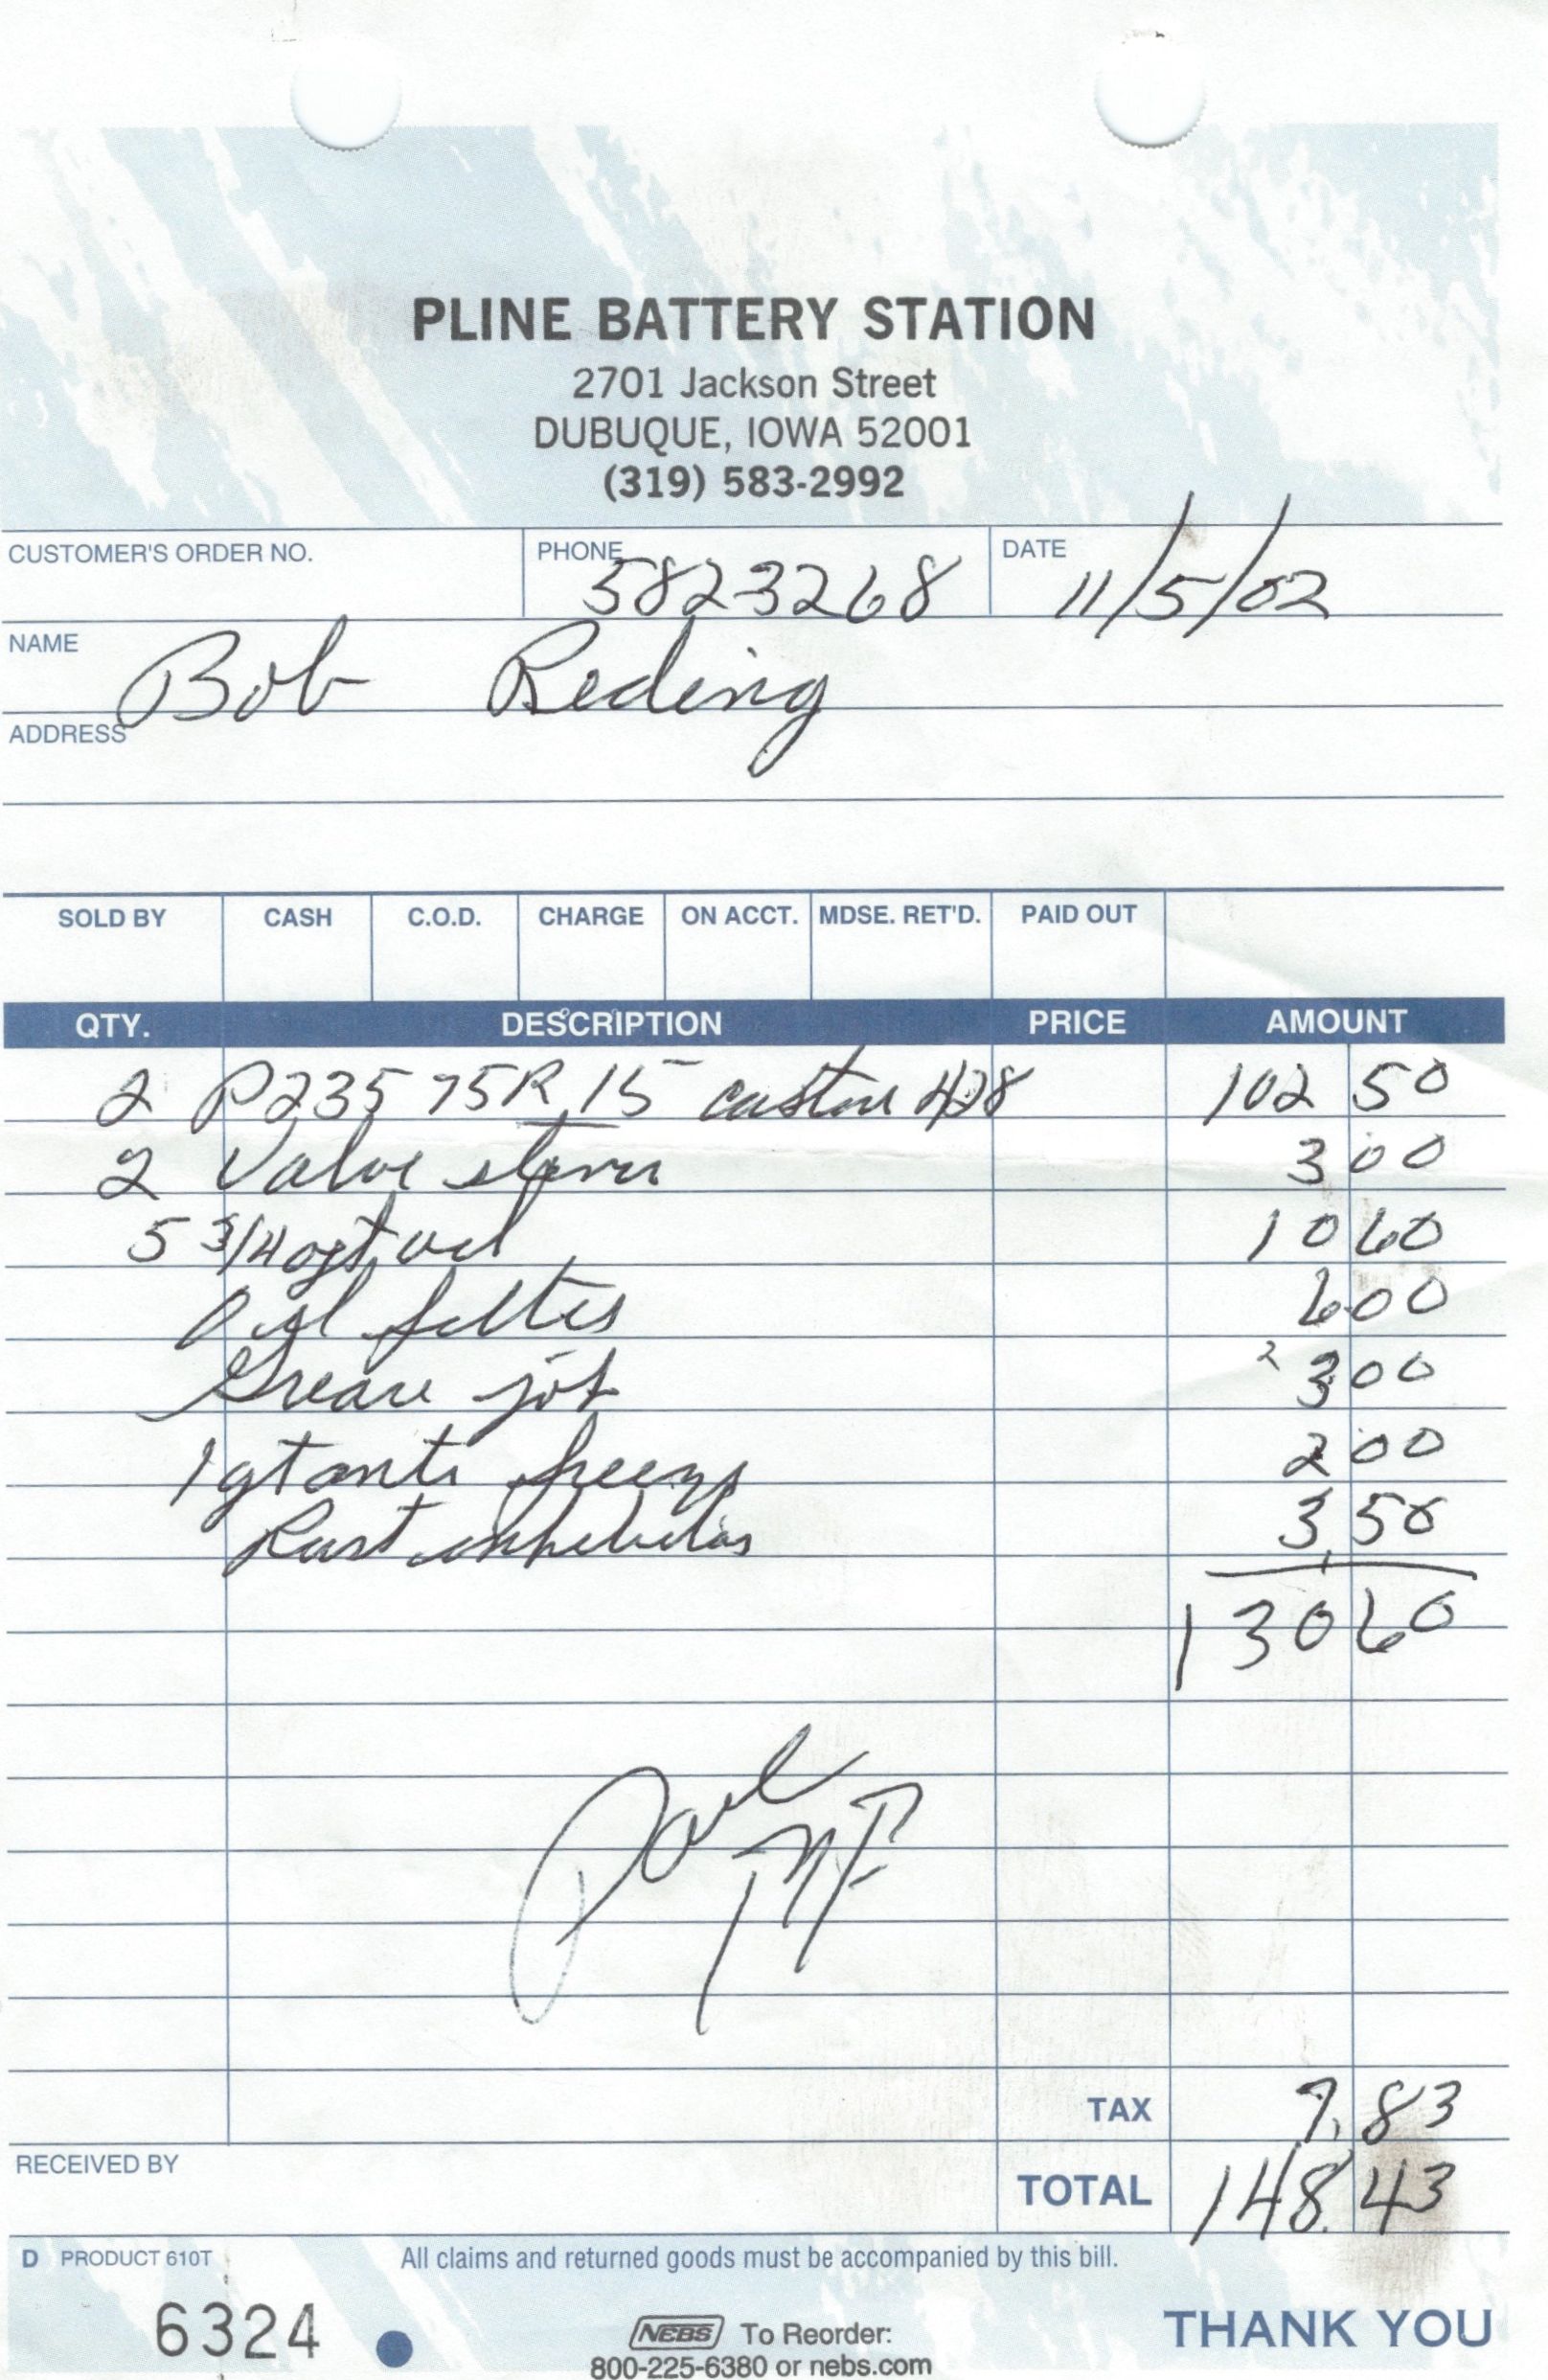 PLINE BATTERY STATION
2701 Jackson Street
DUBUQUE, IOWA 52001
(319) 583-2992
CUSTOMER'S ORDER NO. PHONE 5823268 DATE 11/5/02
NAME Bob Reding
ADDRESS
SOLD BY CASH C.O.D. CHARGE ON ACCT. MDSE. RET'D. PAID OUT
QTY. DESCRIPTION PRICE AMOUNT
2 P235 75R 15 custom 428 102 50
2 Valve stems 3 00
5 3/4 qt oil 10 60
Oil filter 6 00
Grease job 2 3 00
1 qt anti freeze 2 00
Rust inhibitor 3.50
130 60
Paid
TAX 7.83
RECEIVED BY TOTAL 148.43
D PRODUCT 610T All claims and returned goods must be accompanied by this bill.
6324 NEBS To Reorder: THANK YOU
800-225-6380 or nebs.com